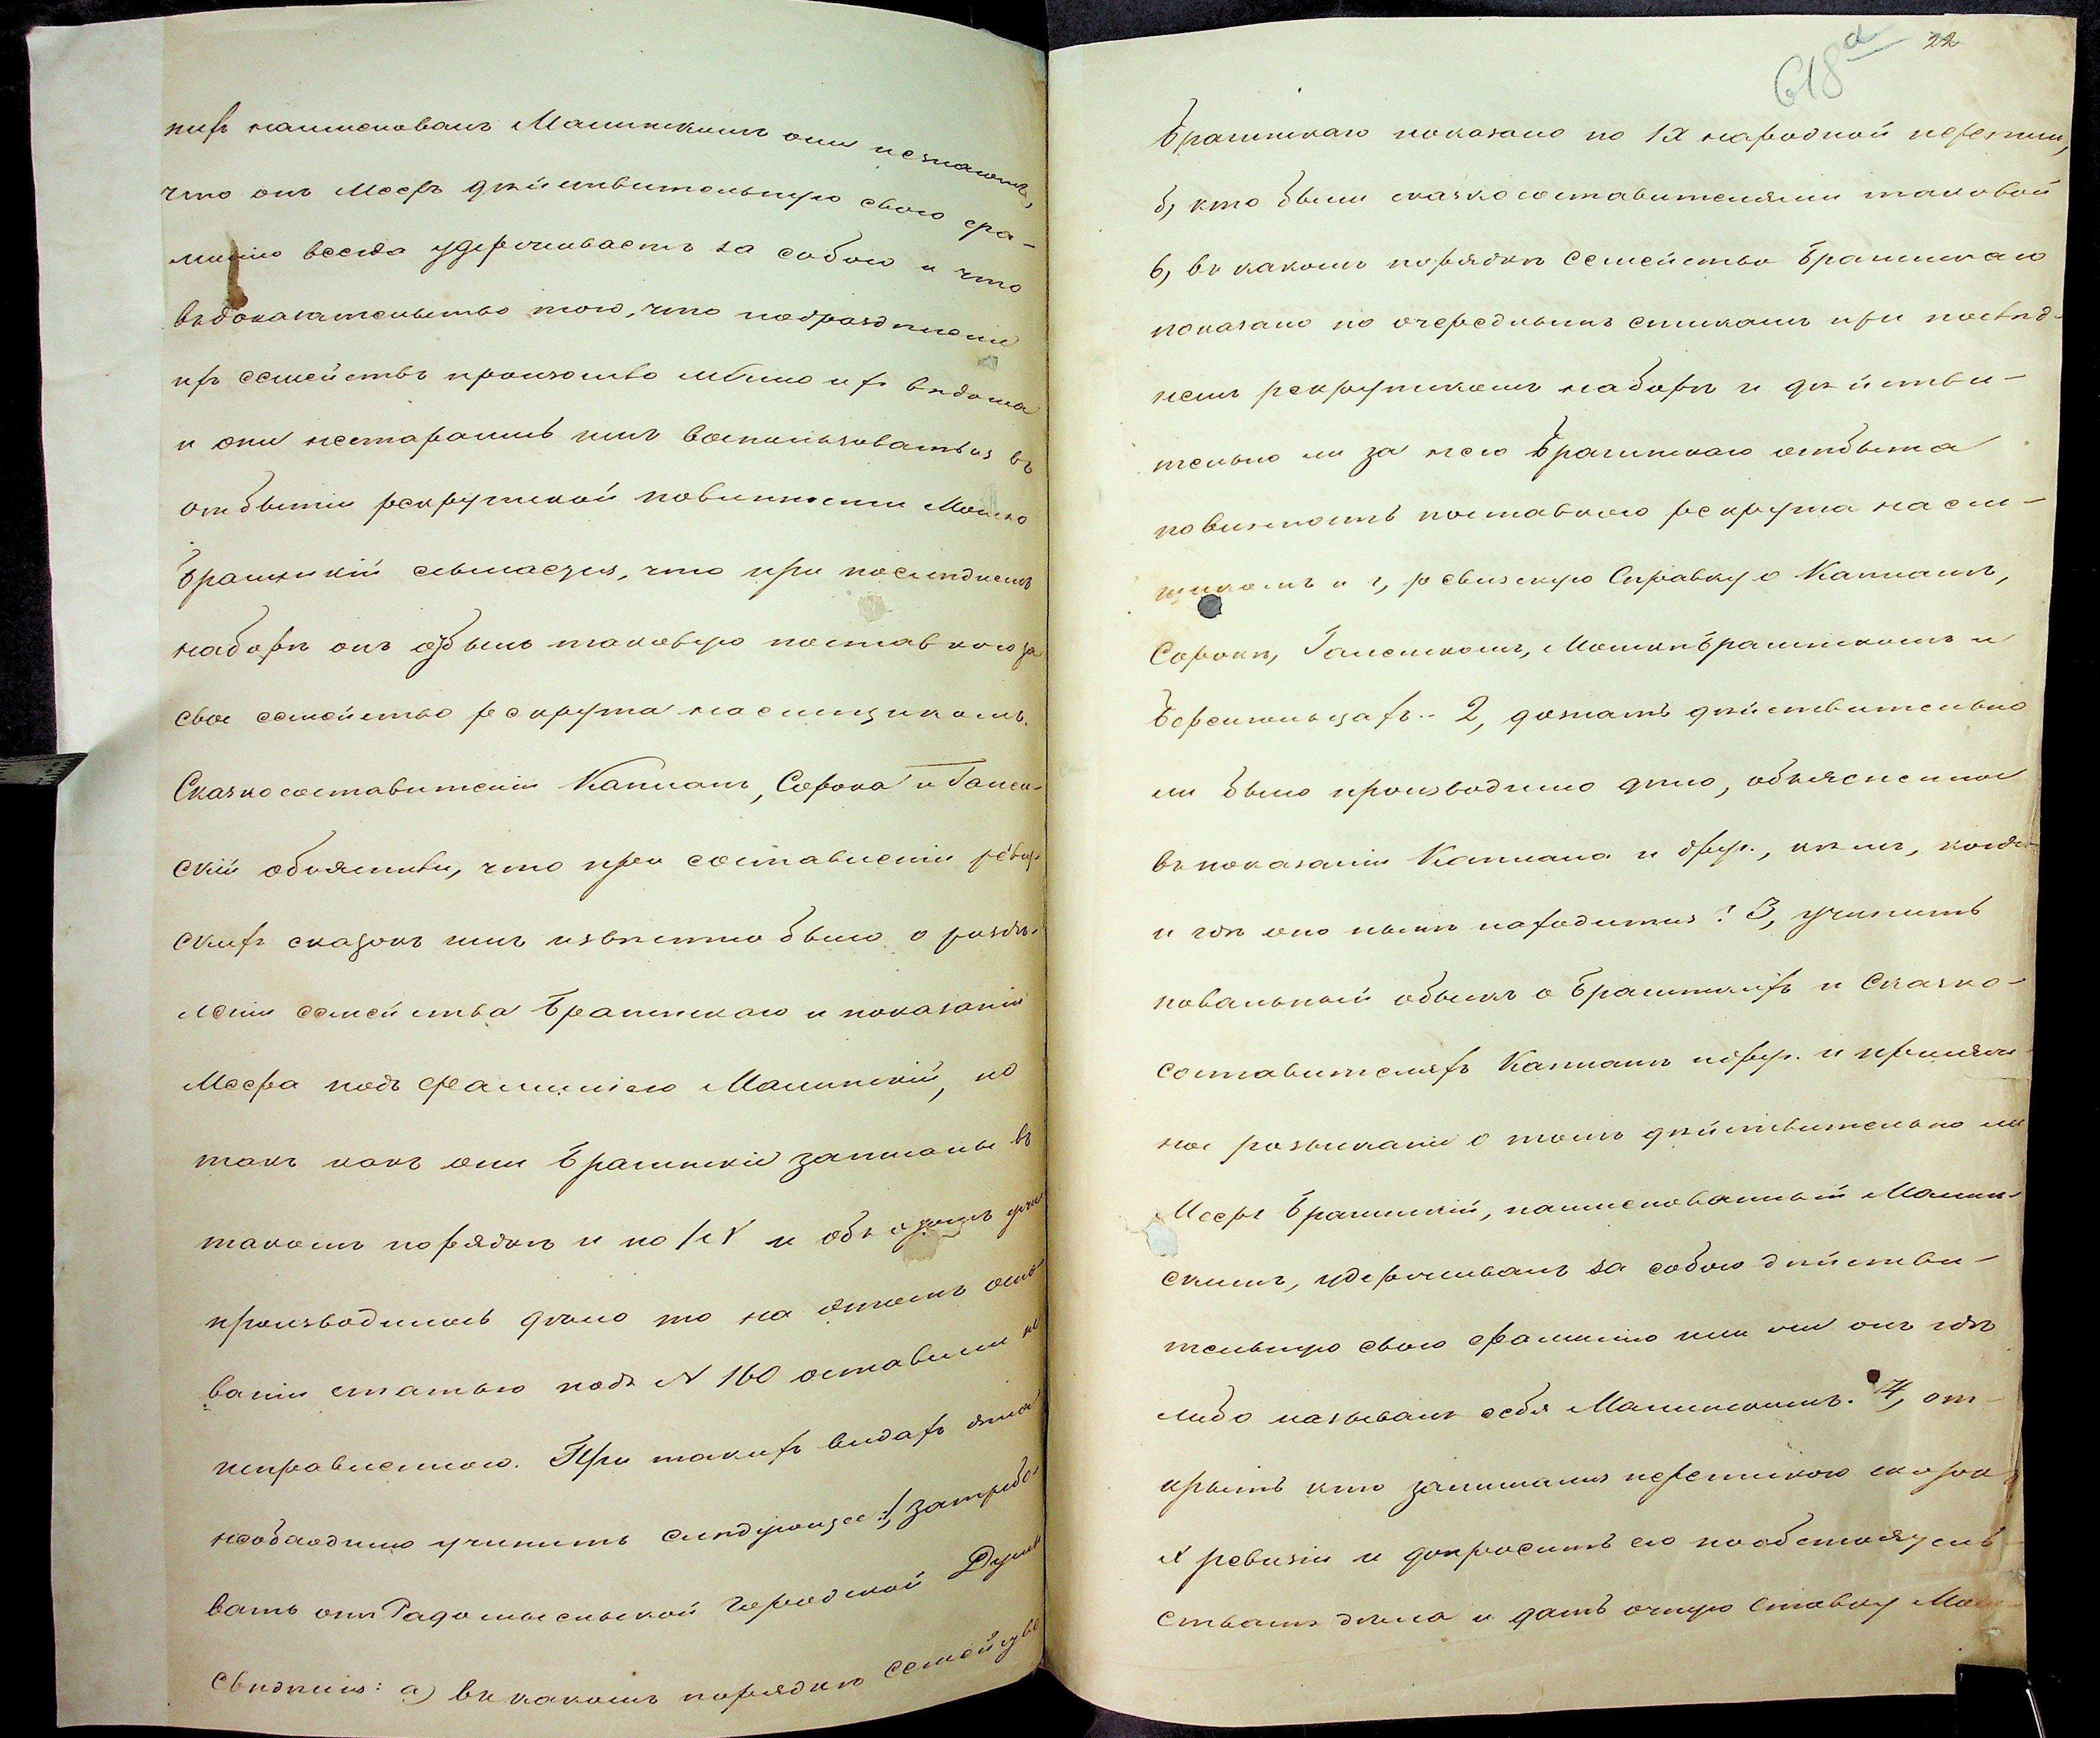 нихъ наименованъ Малинскимъ они незнаютъ,
что онъ Мееръ дѣйствительную свою фа-
милію всегда удерживаетъ за собою и что
въ доказательство того, что подраздѣленіе
ихъ семействъ произошло мѣимо ихъ вѣдома
и они нестарались имъ воспользоваться въ
отбытіи рекрутской повинности Мошко
Брашинскій ссылается, что при послѣднемъ
наборѣ онъ отбылъ таковую поставкою за
свое семейство рекрута наемщикомъ.
Сказкосоставители Капланъ, Сорока и Галем-
скій объяснили, что при составленіи ревиз-
скихъ сказокъ имъ извѣстно было о раздѣ-
леніи семейства Брашинскаго и показаніи
Меера подъ фамиліею Малинскій, но
такъ какъ они Брашинскіе записаны въ
такомъ порядкѣ и по IX и объ этомъ уже
производилось дѣло то на этомъ осно-
ваніи статью подъ N 160 оставили не
исправленною. При такихъ видахъ дѣла
необходимо учинить слѣдующее: 1, затребо-
вать отъ Радомысльской городской Думы
Свѣдѣнія: а) въ какомъ порядкѣ семейство
618а 22
Брашинскаго показано по IX народной переписи,
б, кто были сказкосоставителями таковой
в, въ какомъ порядкѣ семейство Брашинскаго
показано по очереднымъ спискамъ при послѣд-
немъ рекрутскомъ наборѣ и дѣйстви-
тельно ли за него Брашинскаго отбыта
повинность поставкою рекрута наем-
щикомъ и г, ревизскую Справку о Капланѣ,
Сорокѣ, Галемскомъ, Мошкѣ Брашинскомъ и
2, дознать дѣйствительно
ли было производимо дѣло, объясненное
въ показаніи Каплана и друг., кѣмъ, когда
и гдѣ оно нынѣ находится? 3, учинить
повальный обыскъ о Брашинскихъ и Сказко-
составителяхъ Капланѣ и друг. и
ное розысканіе о томъ дѣйствительно ли
Мееръ Брашинскій, наименованный Малин-
скимъ, удерживалъ за собою дѣйстви-
тельную свою фамилію или же онъ гдѣ
либо называлъ себя Малинскимъ. 4, от-
крыть кто занимался перепискою сказокъ
X ревизіи и допросить его по обстоятель-
ствамъ дѣла и дать очную ставку